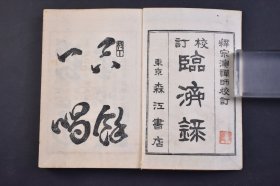 釋宗演禪師校訂
校訂
臨濟録
東京 森江書店
只餘
一喝